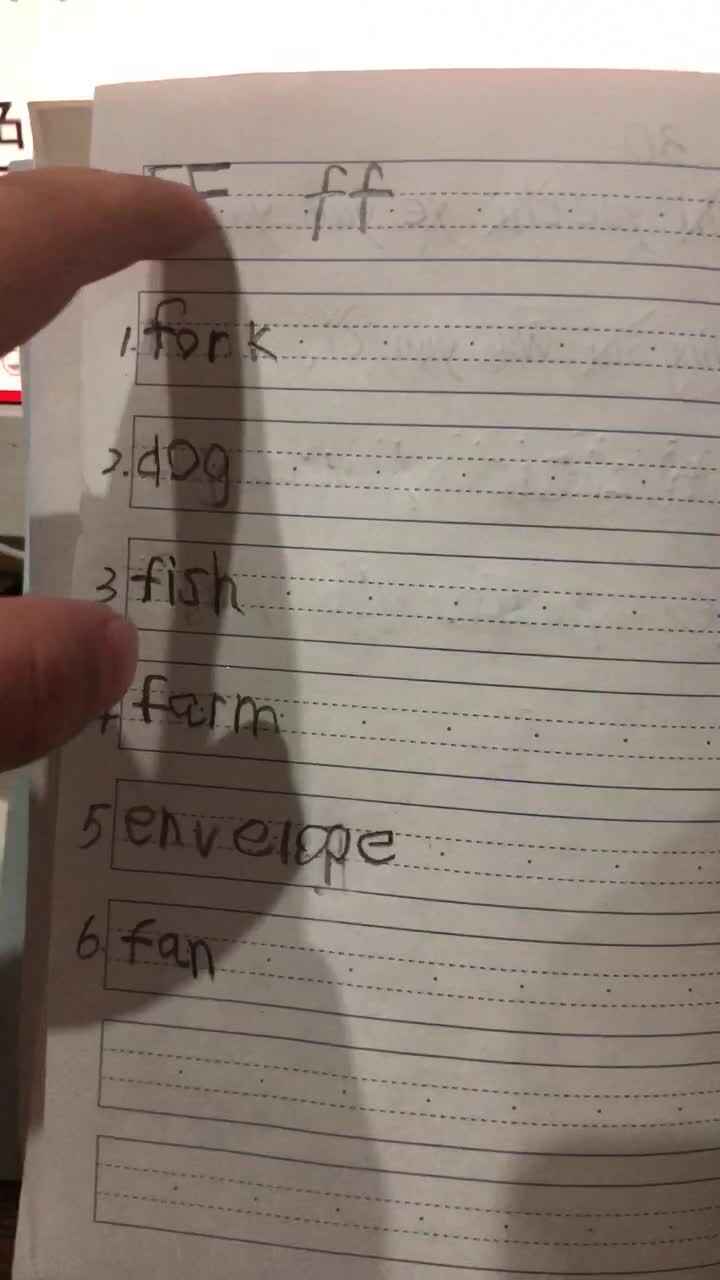 FF ff
1. fork
2. dog
3 fish
4 farm
5 envelope
6. fan